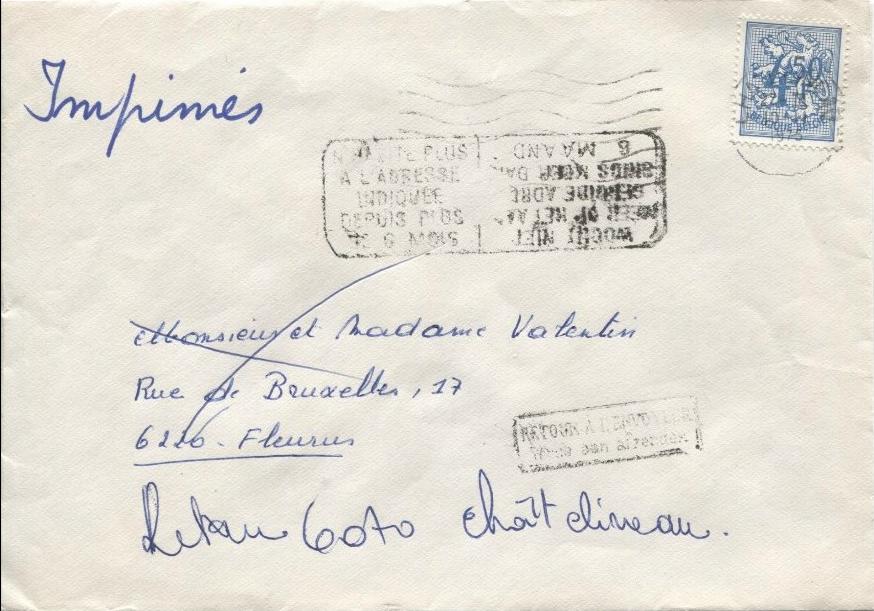 Imprimés
4F50
1973
N'HABITE PLUS
A L'ADRESSE
INDIQUEE
DEPUIS PLUS
DE 6 MOIS
WOONT NIET
MEER OP HET AAN
ADRE
SINDS MEER DAN
6 MAAND
Monsieur et Madame Valentin
Rue de Bruxelles, 17
6220 - Fleurus
RETOUR A L'ENVOYEUR
Terug aan afzender
Retour 6070 Châtelineau.